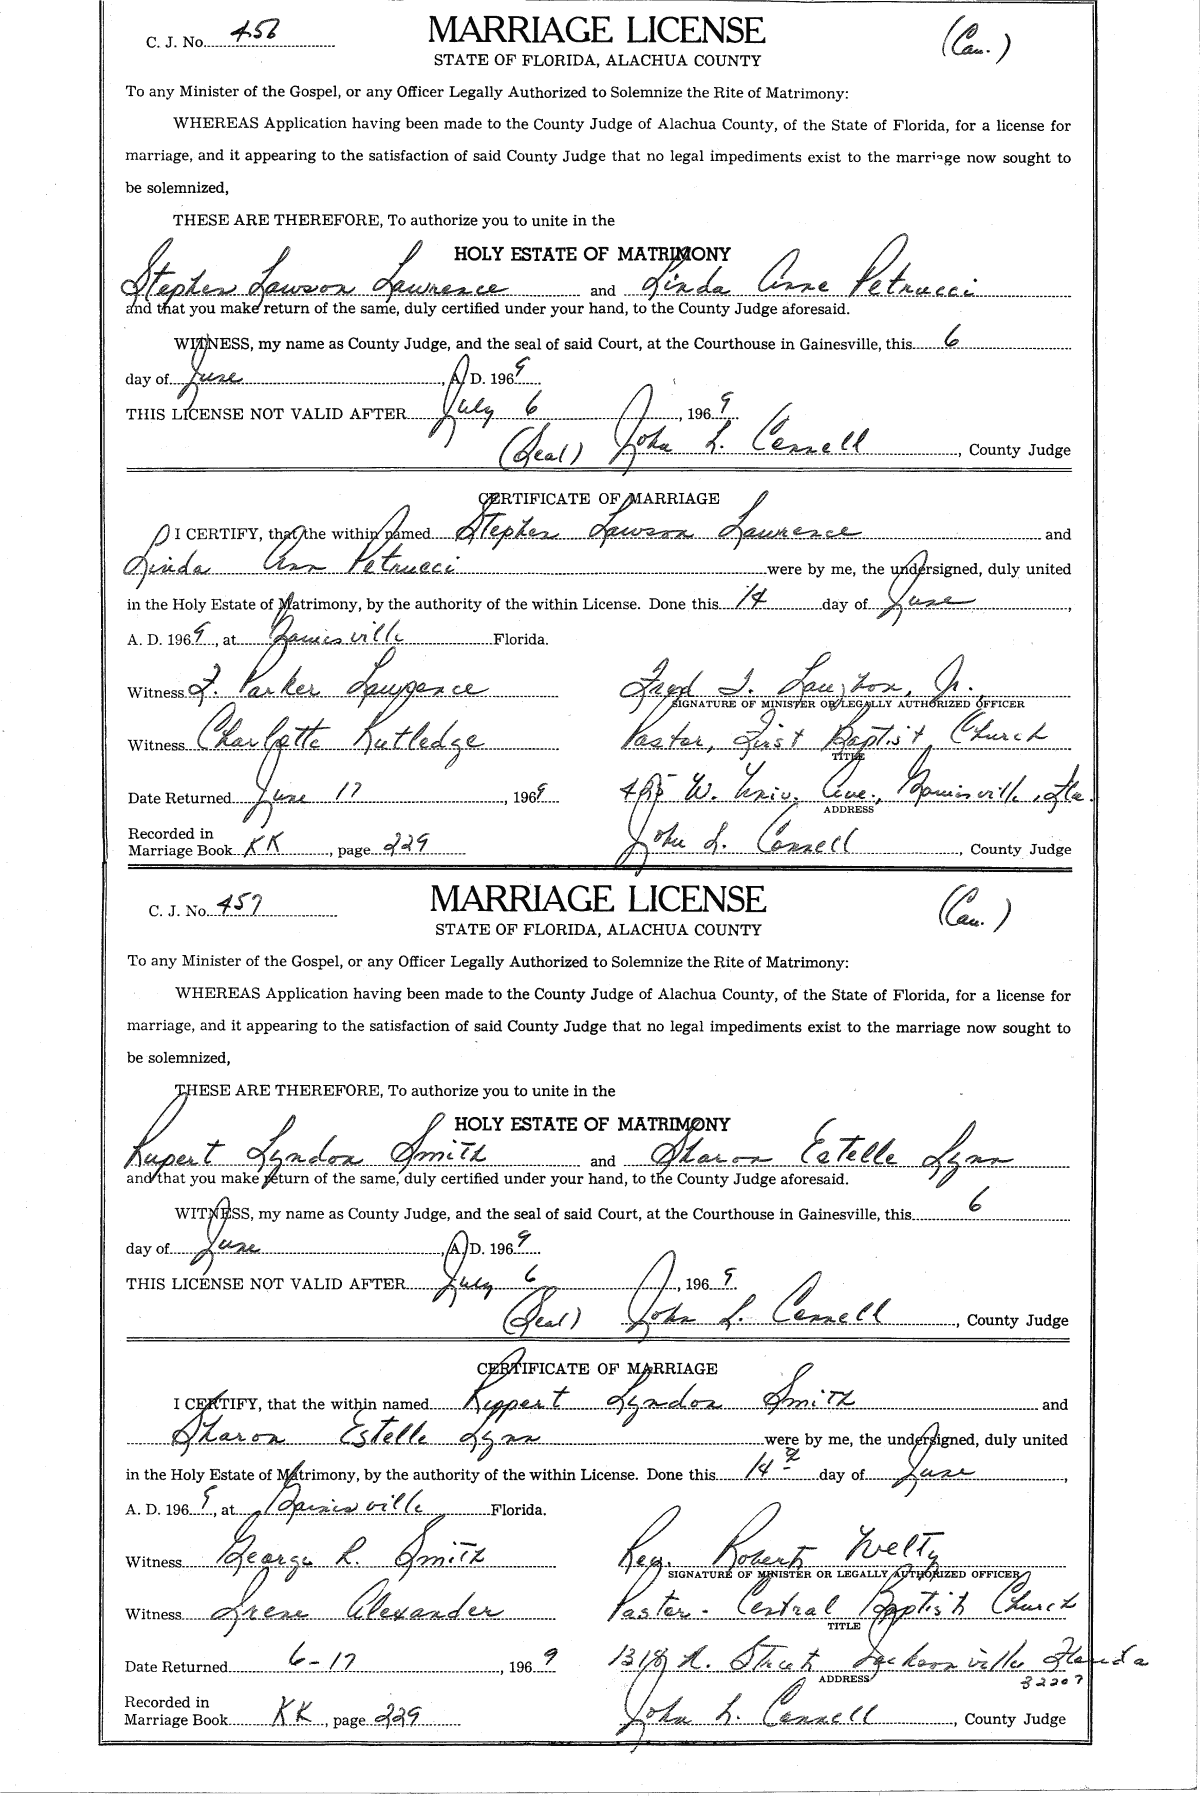 C. J. No. 456 MARRIAGE LICENSE (Cau.)
STATE OF FLORIDA, ALACHUA COUNTY
To any Minister of the Gospel, or any Officer Legally Authorized to Solemnize the Rite of Matrimony:
WHEREAS Application having been made to the County Judge of Alachua County, of the State of Florida, for a license for
marriage, and it appearing to the satisfaction of said County Judge that no legal impediments exist to the marriage now sought to
be solemnized,
THESE ARE THEREFORE, To authorize you to unite in the
HOLY ESTATE OF MATRIMONY
Stephen Lawson Lawrence and Linda Anne Petrucci
and that you make return of the same, duly certified under your hand, to the County Judge aforesaid.
WITNESS, my name as County Judge, and the seal of said Court, at the Courthouse in Gainesville, this 6
day of June, A. D. 1969
THIS LICENSE NOT VALID AFTER July 6, 1969
(Seal) John L. Connell, County Judge
CERTIFICATE OF MARRIAGE
I CERTIFY, that the within named Stephen Lawson Lawrence and
Linda Ann Petrucci were by me, the undersigned, duly united
in the Holy Estate of Matrimony, by the authority of the within License. Done this 14 day of June,
A. D. 1969, at Gainesville Florida.
Witness F. Parker Lawrence Fred T. Laughon, Jr.
SIGNATURE OF MINISTER OR LEGALLY AUTHORIZED OFFICER
Witness Charlotte Rutledge Pastor, First Baptist Church
TITLE
Date Returned June 17, 1969 425 W. Univ. Ave., Gainesville, Fla.
ADDRESS
Recorded in
Marriage Book KK, page 229 John L. Connell, County Judge
C. J. No. 457 MARRIAGE LICENSE (Cau.)
STATE OF FLORIDA, ALACHUA COUNTY
To any Minister of the Gospel, or any Officer Legally Authorized to Solemnize the Rite of Matrimony:
WHEREAS Application having been made to the County Judge of Alachua County, of the State of Florida, for a license for
marriage, and it appearing to the satisfaction of said County Judge that no legal impediments exist to the marriage now sought to
be solemnized,
THESE ARE THEREFORE, To authorize you to unite in the
HOLY ESTATE OF MATRIMONY
Rupert Lyndon Smith and Sharon Estelle Lynn
and that you make return of the same, duly certified under your hand, to the County Judge aforesaid.
WITNESS, my name as County Judge, and the seal of said Court, at the Courthouse in Gainesville, this 6
day of June, A. D. 1969
THIS LICENSE NOT VALID AFTER July 6, 1969
(Seal) John L. Connell, County Judge
CERTIFICATE OF MARRIAGE
I CERTIFY, that the within named Ruppert Lyndon Smith and
Sharon Estelle Lynn were by me, the undersigned, duly united
in the Holy Estate of Matrimony, by the authority of the within License. Done this 14 day of June,
A. D. 1969, at Gainesville Florida.
Witness George R. Smith Rev. Robert Welty
SIGNATURE OF MINISTER OR LEGALLY AUTHORIZED OFFICER
Witness Irene Alexander Pastor - Central Baptist Church
TITLE
Date Returned 6-17, 1969 Street Jacksonville Florida
ADDRESS 32207
Recorded in
Marriage Book KK, page 229 John L. Connell, County Judge